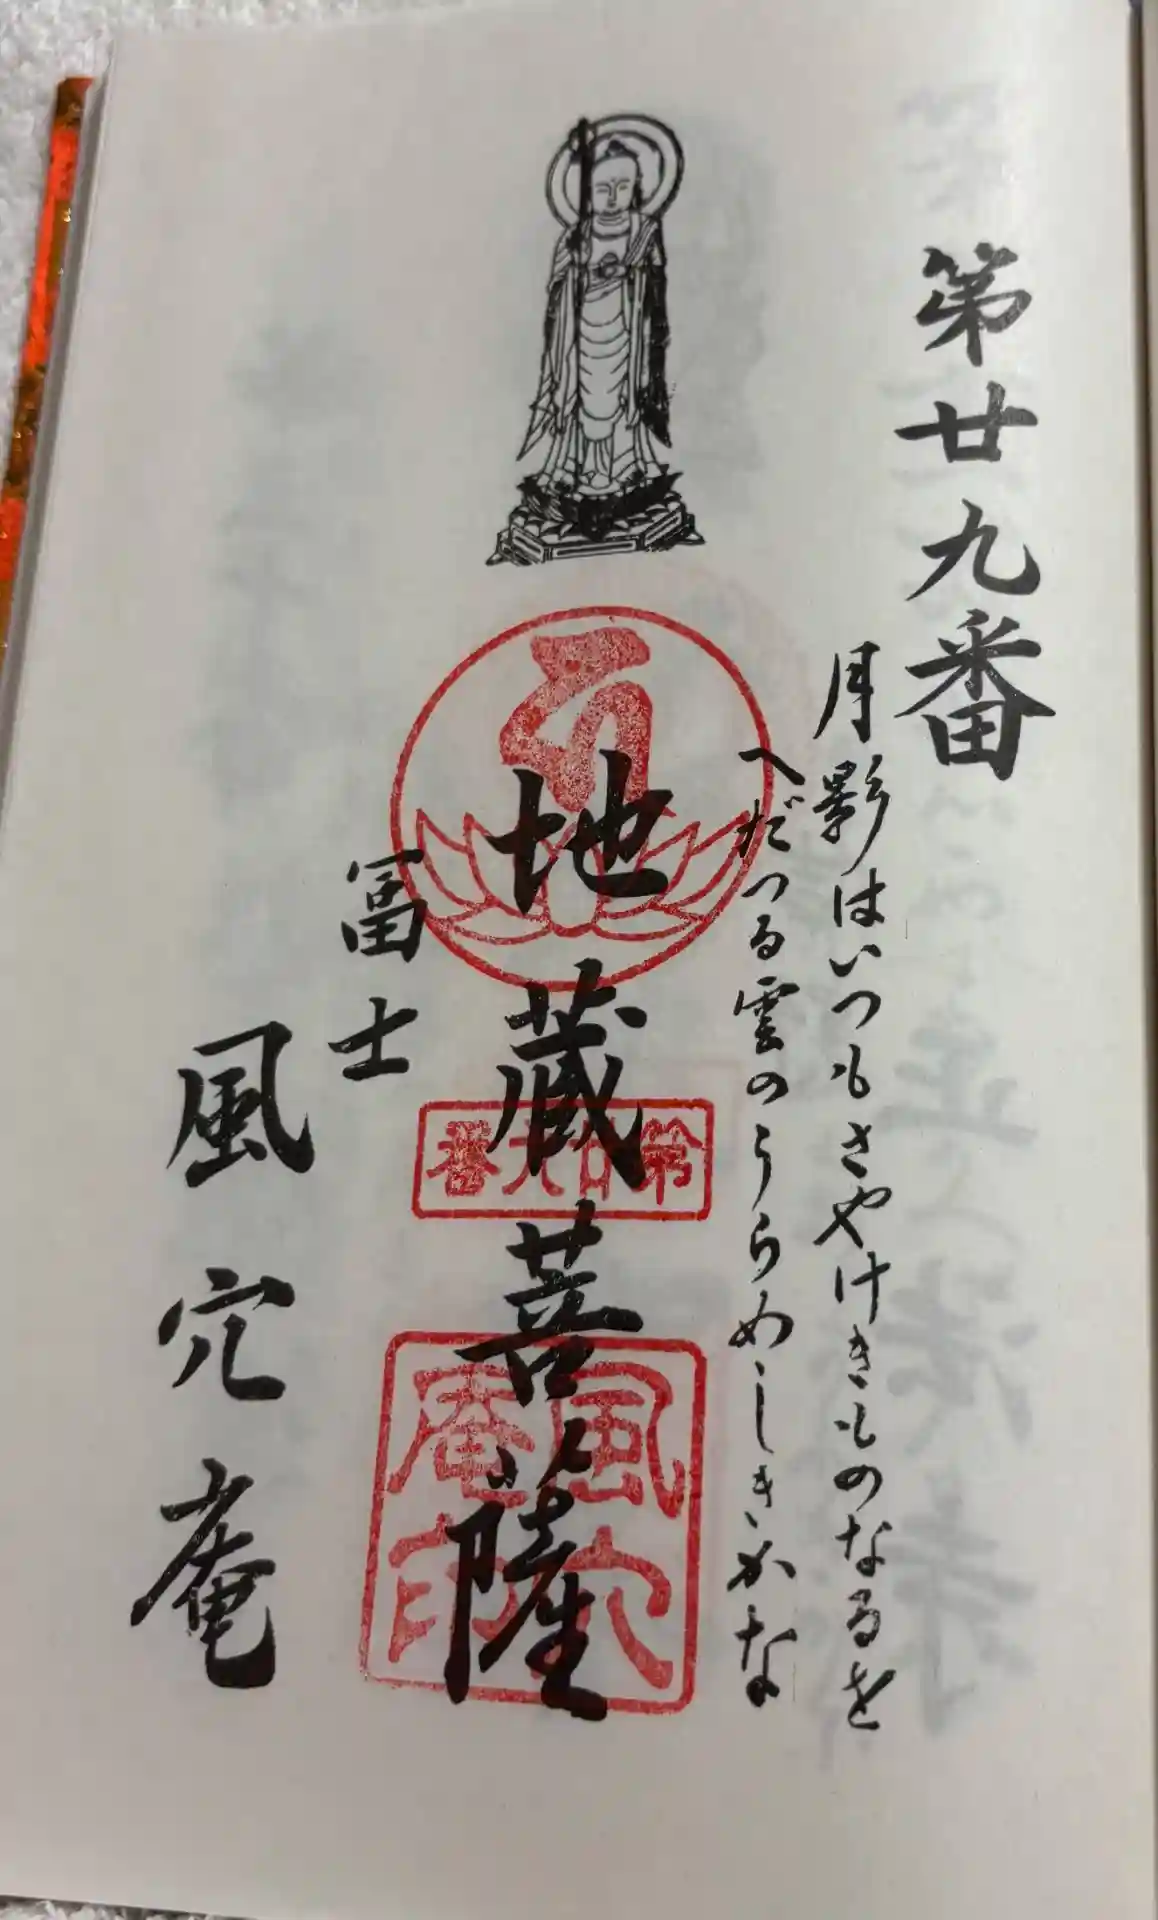 第廿九番
月影はいつもさやけきものなるを
へだつる雲のうらめしきかな
地蔵菩薩
第廿九番
風穴庵印
冨士
風穴庵